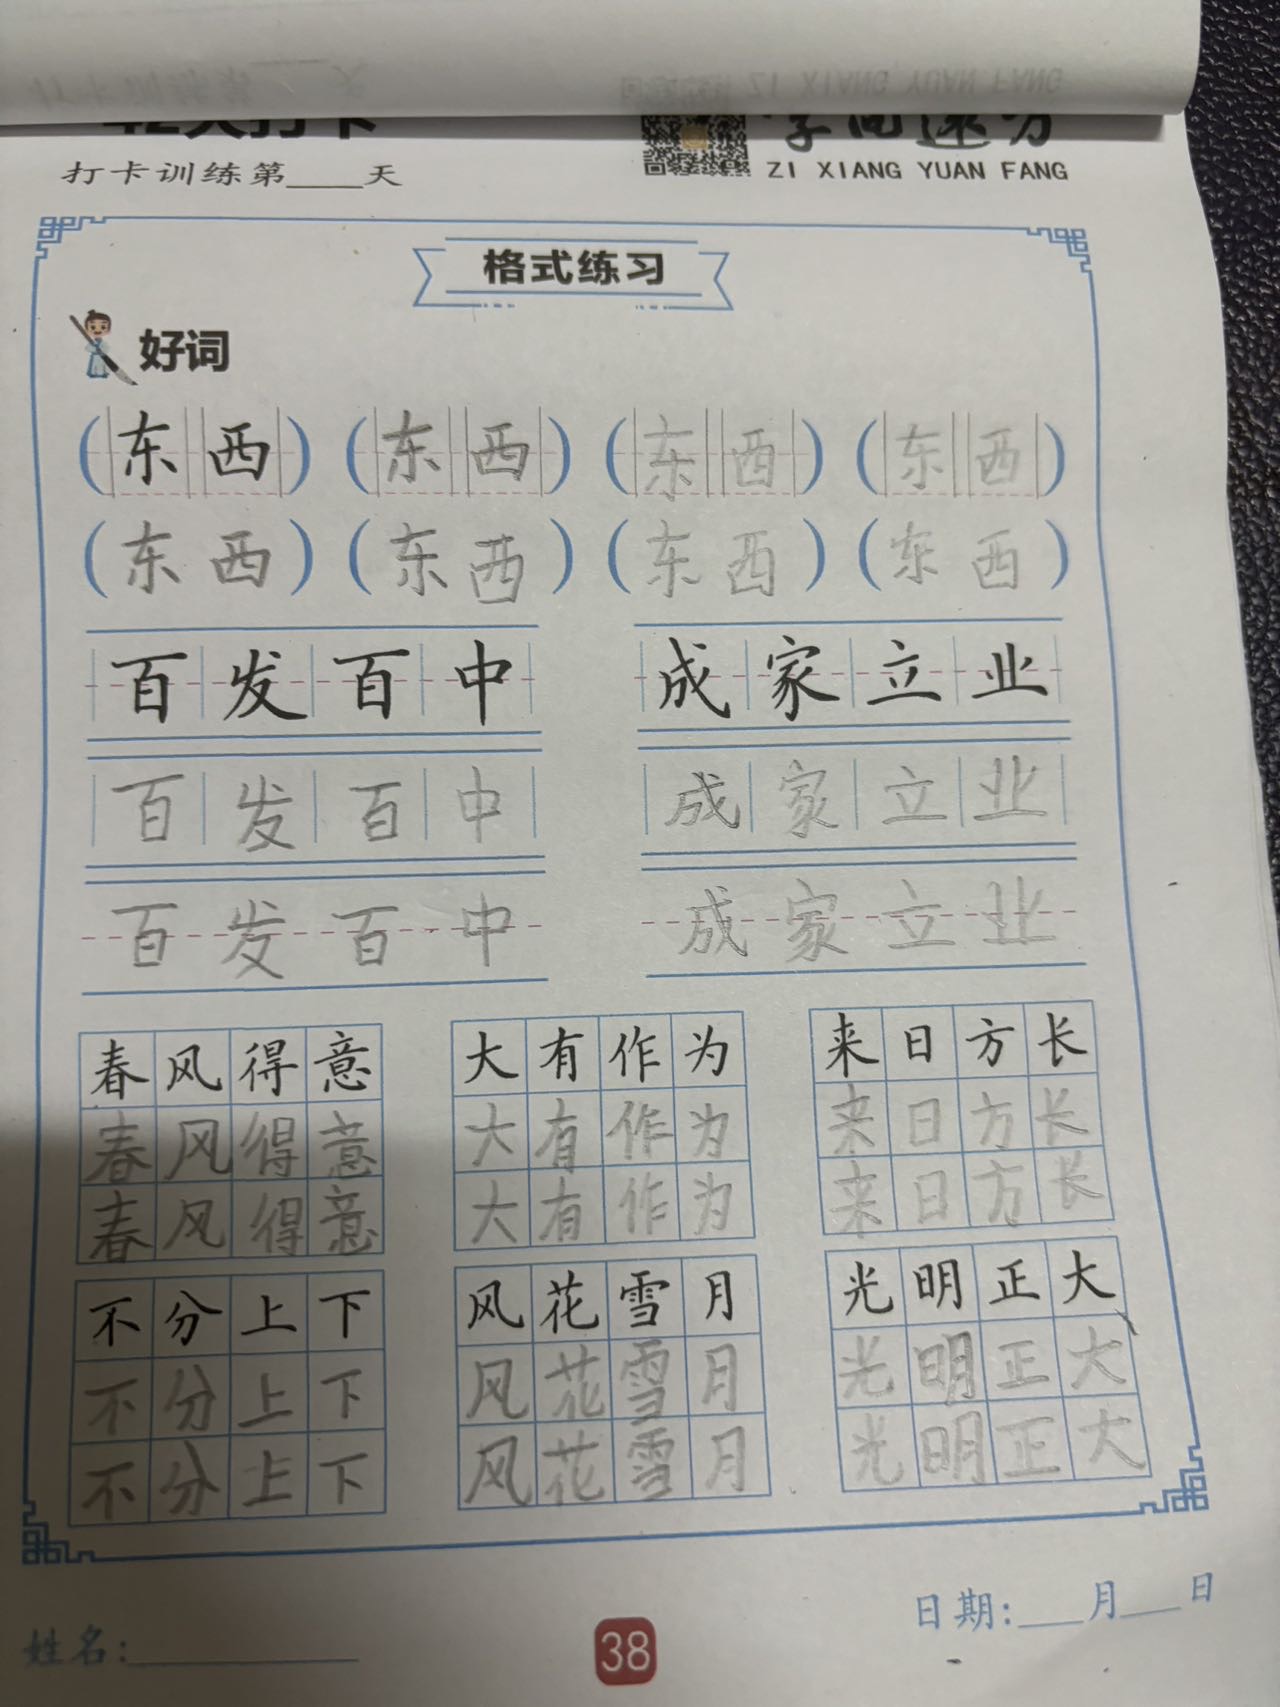 打卡训练第____天
ZI XIANG YUAN FANG
格式练习
好词
(东西) (东西) (东西) (东西)
(东西) (东西) (东西) (东西)
百发百中 成家立业
百发百中 成家立业
百发百中 成家立业
春风得意 大有作为 来日方长
春风得意 大有作为 来日方长
春风得意 大有作为 来日方长
不分上下 风花雪月 光明正大
不分上下 风花雪月 光明正大
不分上下 风花雪月 光明正大
日期:___月___日
姓名:________
38